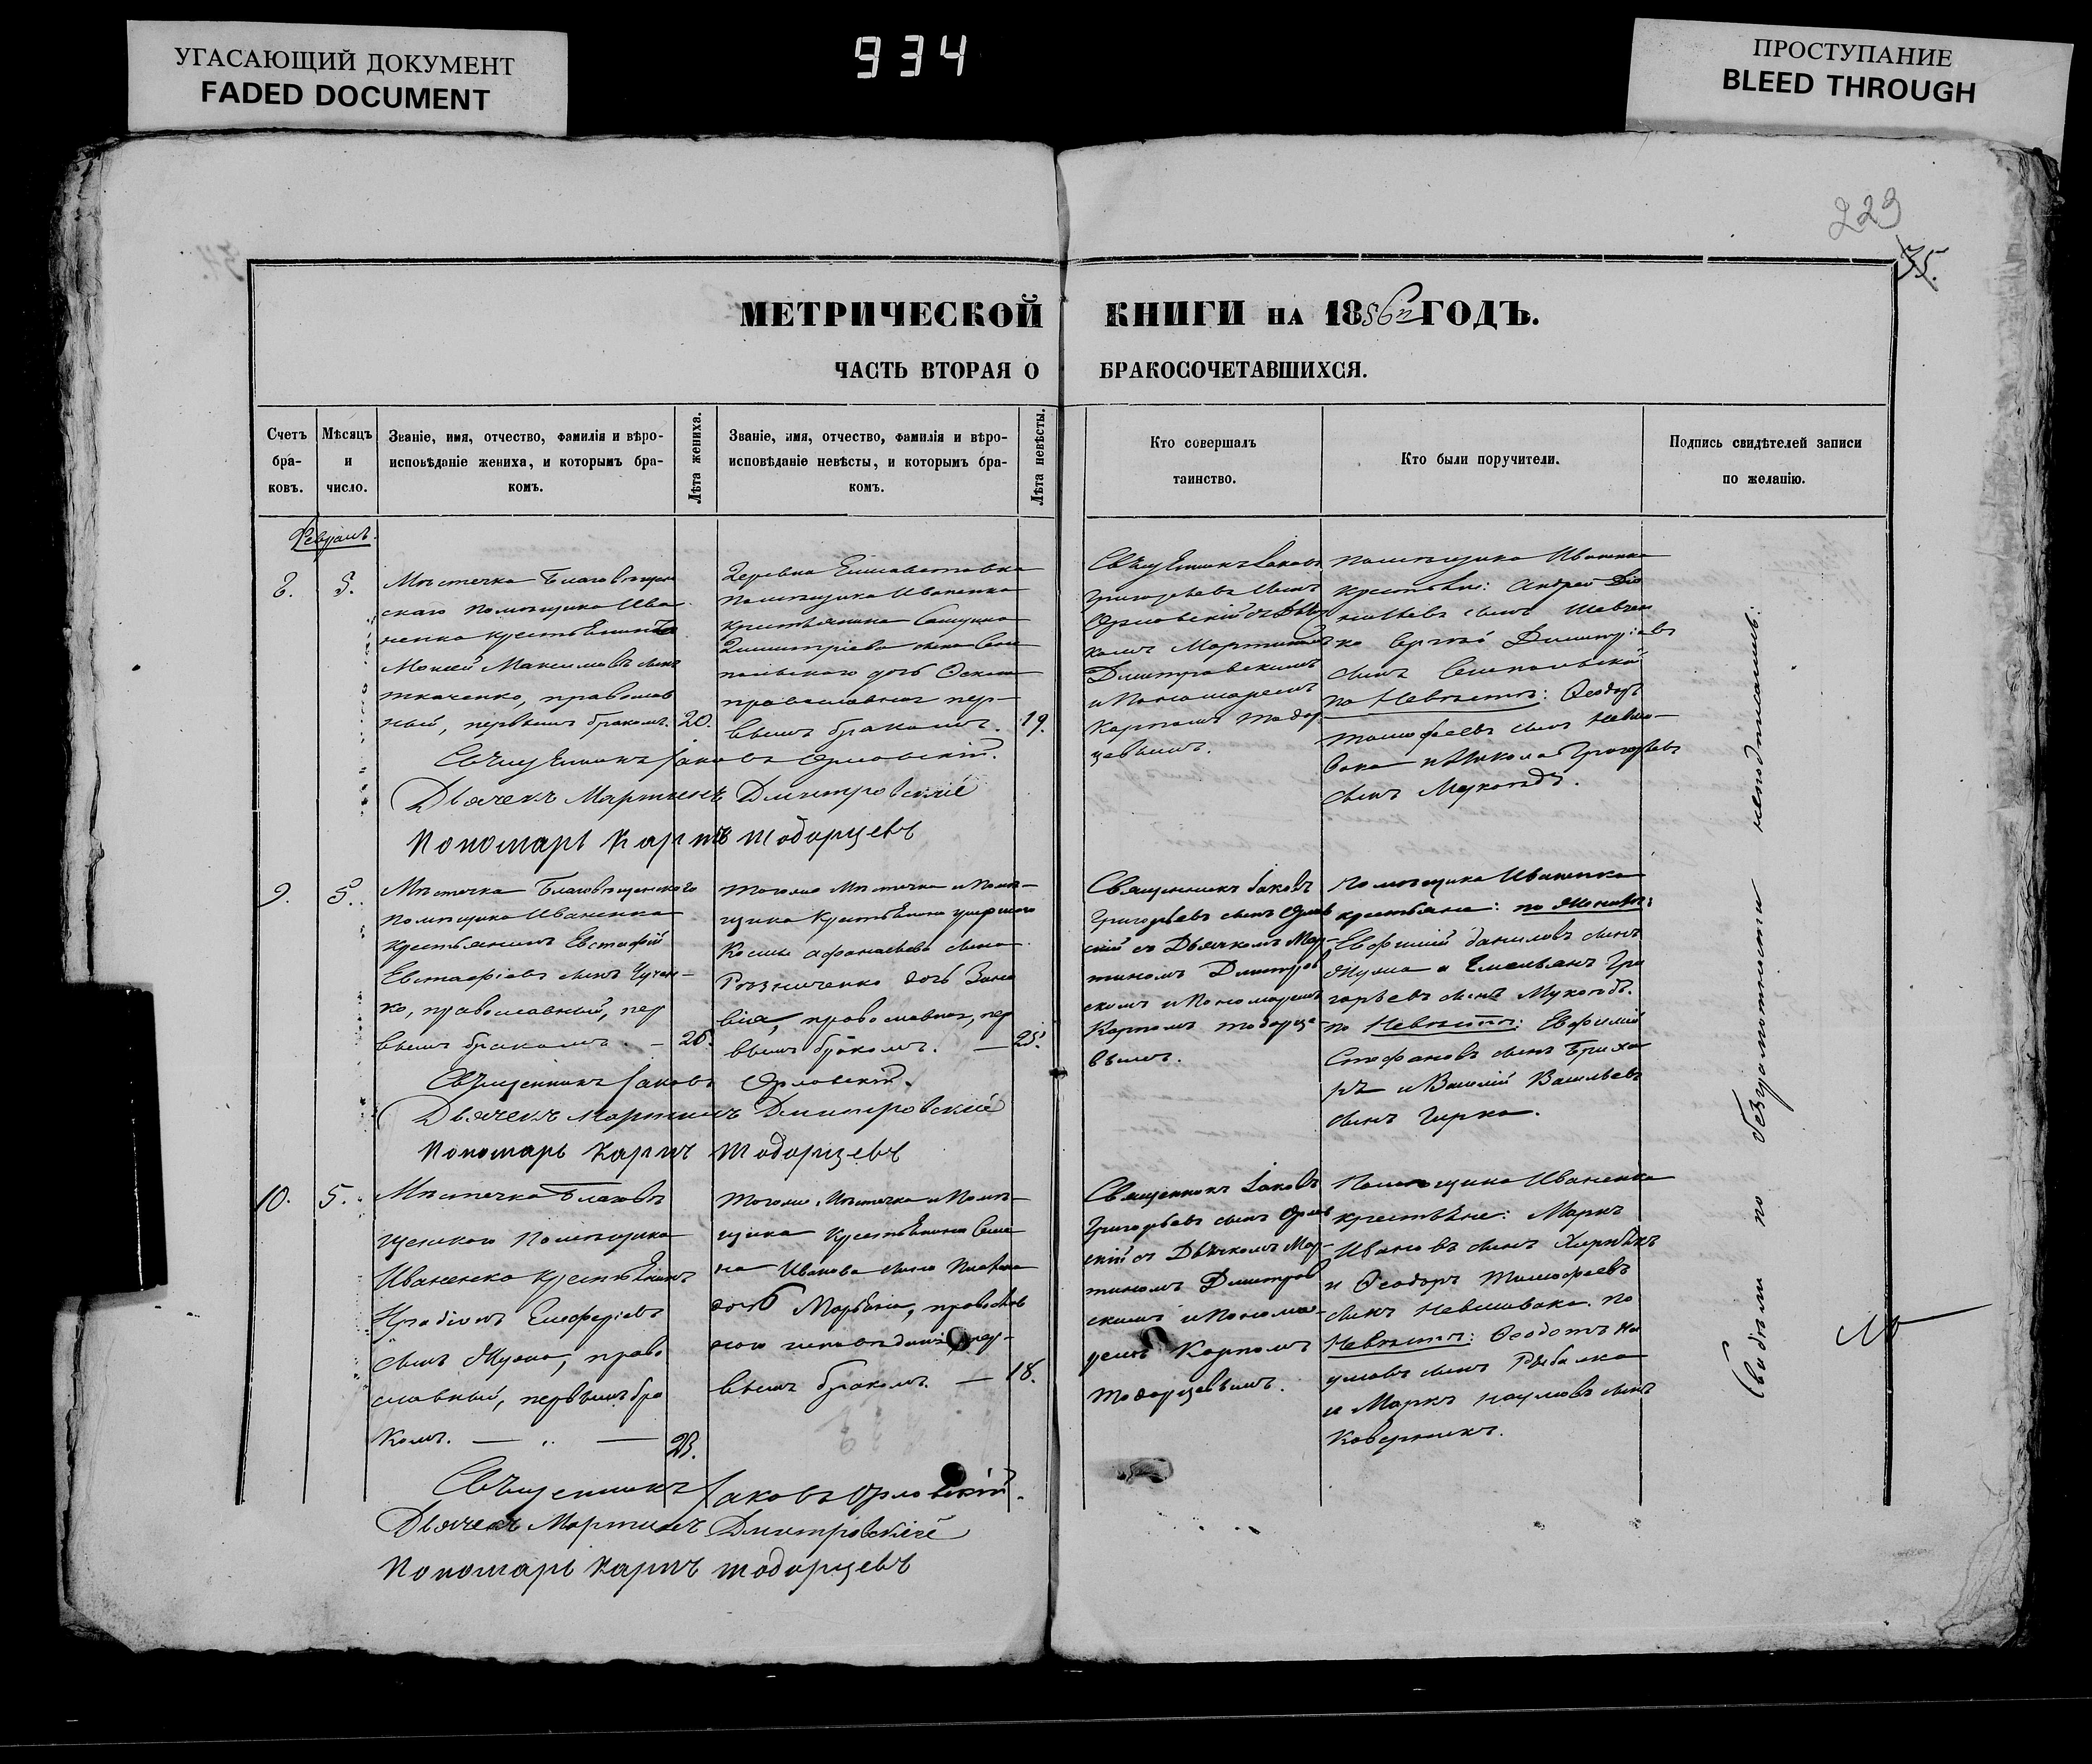 УГАСАЮЩИЙ ДОКУМЕНТ
FADED DOCUMENT
934
ПРОСТУПАНИЕ
BLEED THROUGH
223
35.
МЕТРИЧЕСКОЙ КНИГИ НА 1856й ГОДЪ.
ЧАСТЬ ВТОРАЯ О БРАКОСОЧЕТАВШИХСЯ.
Счетъ бра-
ковъ.
Мѣсяцъ
и
число.
Званіе, имя, отчество, фамилія и вѣро-
исповѣданіе жениха, и которымъ бра-
комъ.
Лѣта жениха.
Званіе, имя, отчество, фамилія и вѣро-
исповѣданіе невѣсты, и которымъ бра-
комъ.
Лѣта невѣсты.
Кто совершалъ
таинство.
Кто были поручители.
Подпись свидѣтелей записи
по желанію.
Февраль.
8.
5.
Мѣстечка Благовѣщен
скаго помѣщика Ива
ненка крестьянинъ
Моисей Максимовъ сынъ
Ткаченко, православ
ный, первымъ бракомъ.
20.
Деревни Елисаветовки
помѣщика Иваненка
крестьянина
Димитріева сына
дочь
православная пер-
вымъ бракомъ.
19.
Священникъ Іаковъ
Григорьевъ сынъ
Орловскій съ Дьяч
комъ Мартиномъ
Дмитровскимъ
и Пономаремъ
Карпомъ Тодор
цевымъ.
помѣщика Иваненка
крестьяне: Андрей
сынъ Шевчен
ко Сергѣй Димитріевъ
сынъ
по Невѣстѣ: Ѳеодоръ
Тимофеевъ сынъ
и Николай Григорьевъ
сынъ Мукоѣдъ.
Священникъ Іаковъ Орловскій.
Дьячекъ Мартинъ Дмитровскій
Пономарь Карпъ Тодорцевъ
9.
5.
Мѣстечка Благовѣщенскаго
помѣщика Иваненка
крестьянинъ Евстафій
Евстафіевъ сынъ
ко, православный, пер
вымъ бракомъ. —
26.
тогоже Мѣстечка и помѣ-
щика крестьянина умершаго
Козьмы Афонасьева сына
Рѣзниченко дочь Зино
вія, православная, пер
вымъ бракомъ. —
25.
Священникъ Іаковъ
Григорьевъ сынъ Орлов
скій съ Дьячкомъ Мар-
тиномъ Дмитров
скимъ и Пономаремъ
Карпомъ Тодорце
вымъ.
помѣщика Иваненка
крестьяне: по Женихѣ:
Ефимій Даниловъ сынъ
и Емельянъ Гри
горьевъ сынъ Мукоѣдъ.
по Невѣстѣ: Ефимій
Стефановъ сынъ
и Василій Васильевъ
сынъ Гирка.
Священникъ Іаковъ Орловскій.
Дьячекъ Мартинъ Дмитровскій
Пономарь Карпъ Тодорцевъ
10.
5.
Мѣстечка Благовѣ
щенскаго помѣщика
Иваненка крестьянинъ
сынъ право
славный, первымъ бра
комъ. — „ —
23.
тогоже Мѣстечка и помѣ-
щика крестьянина Семе
на Иванова сына
дочь Марѳина, православ
наго исповѣданія, пер-
вымъ бракомъ. —
18.
Священникъ Іаковъ
Григорьевъ сынъ Орлов
скій съ Дьячкомъ Мар-
тиномъ Дмитров
скимъ и Понома-
ремъ Карпомъ
Тодорцевымъ.
помѣщика Иваненка
крестьяне: Маркъ
Ивановъ сынъ
и Ѳеодоръ Тимофеевъ
сынъ по
Невѣстѣ: Ѳеодотъ На
умовъ сынъ Рыбалка
и Маркъ Наумовъ сынъ
Коверникъ.
Священникъ Іаковъ Орловскій.
Дьячекъ Мартинъ Дмитровскій
Пономарь Карпъ Тодорцевъ
Свидѣтели по безграмотности неподписались: